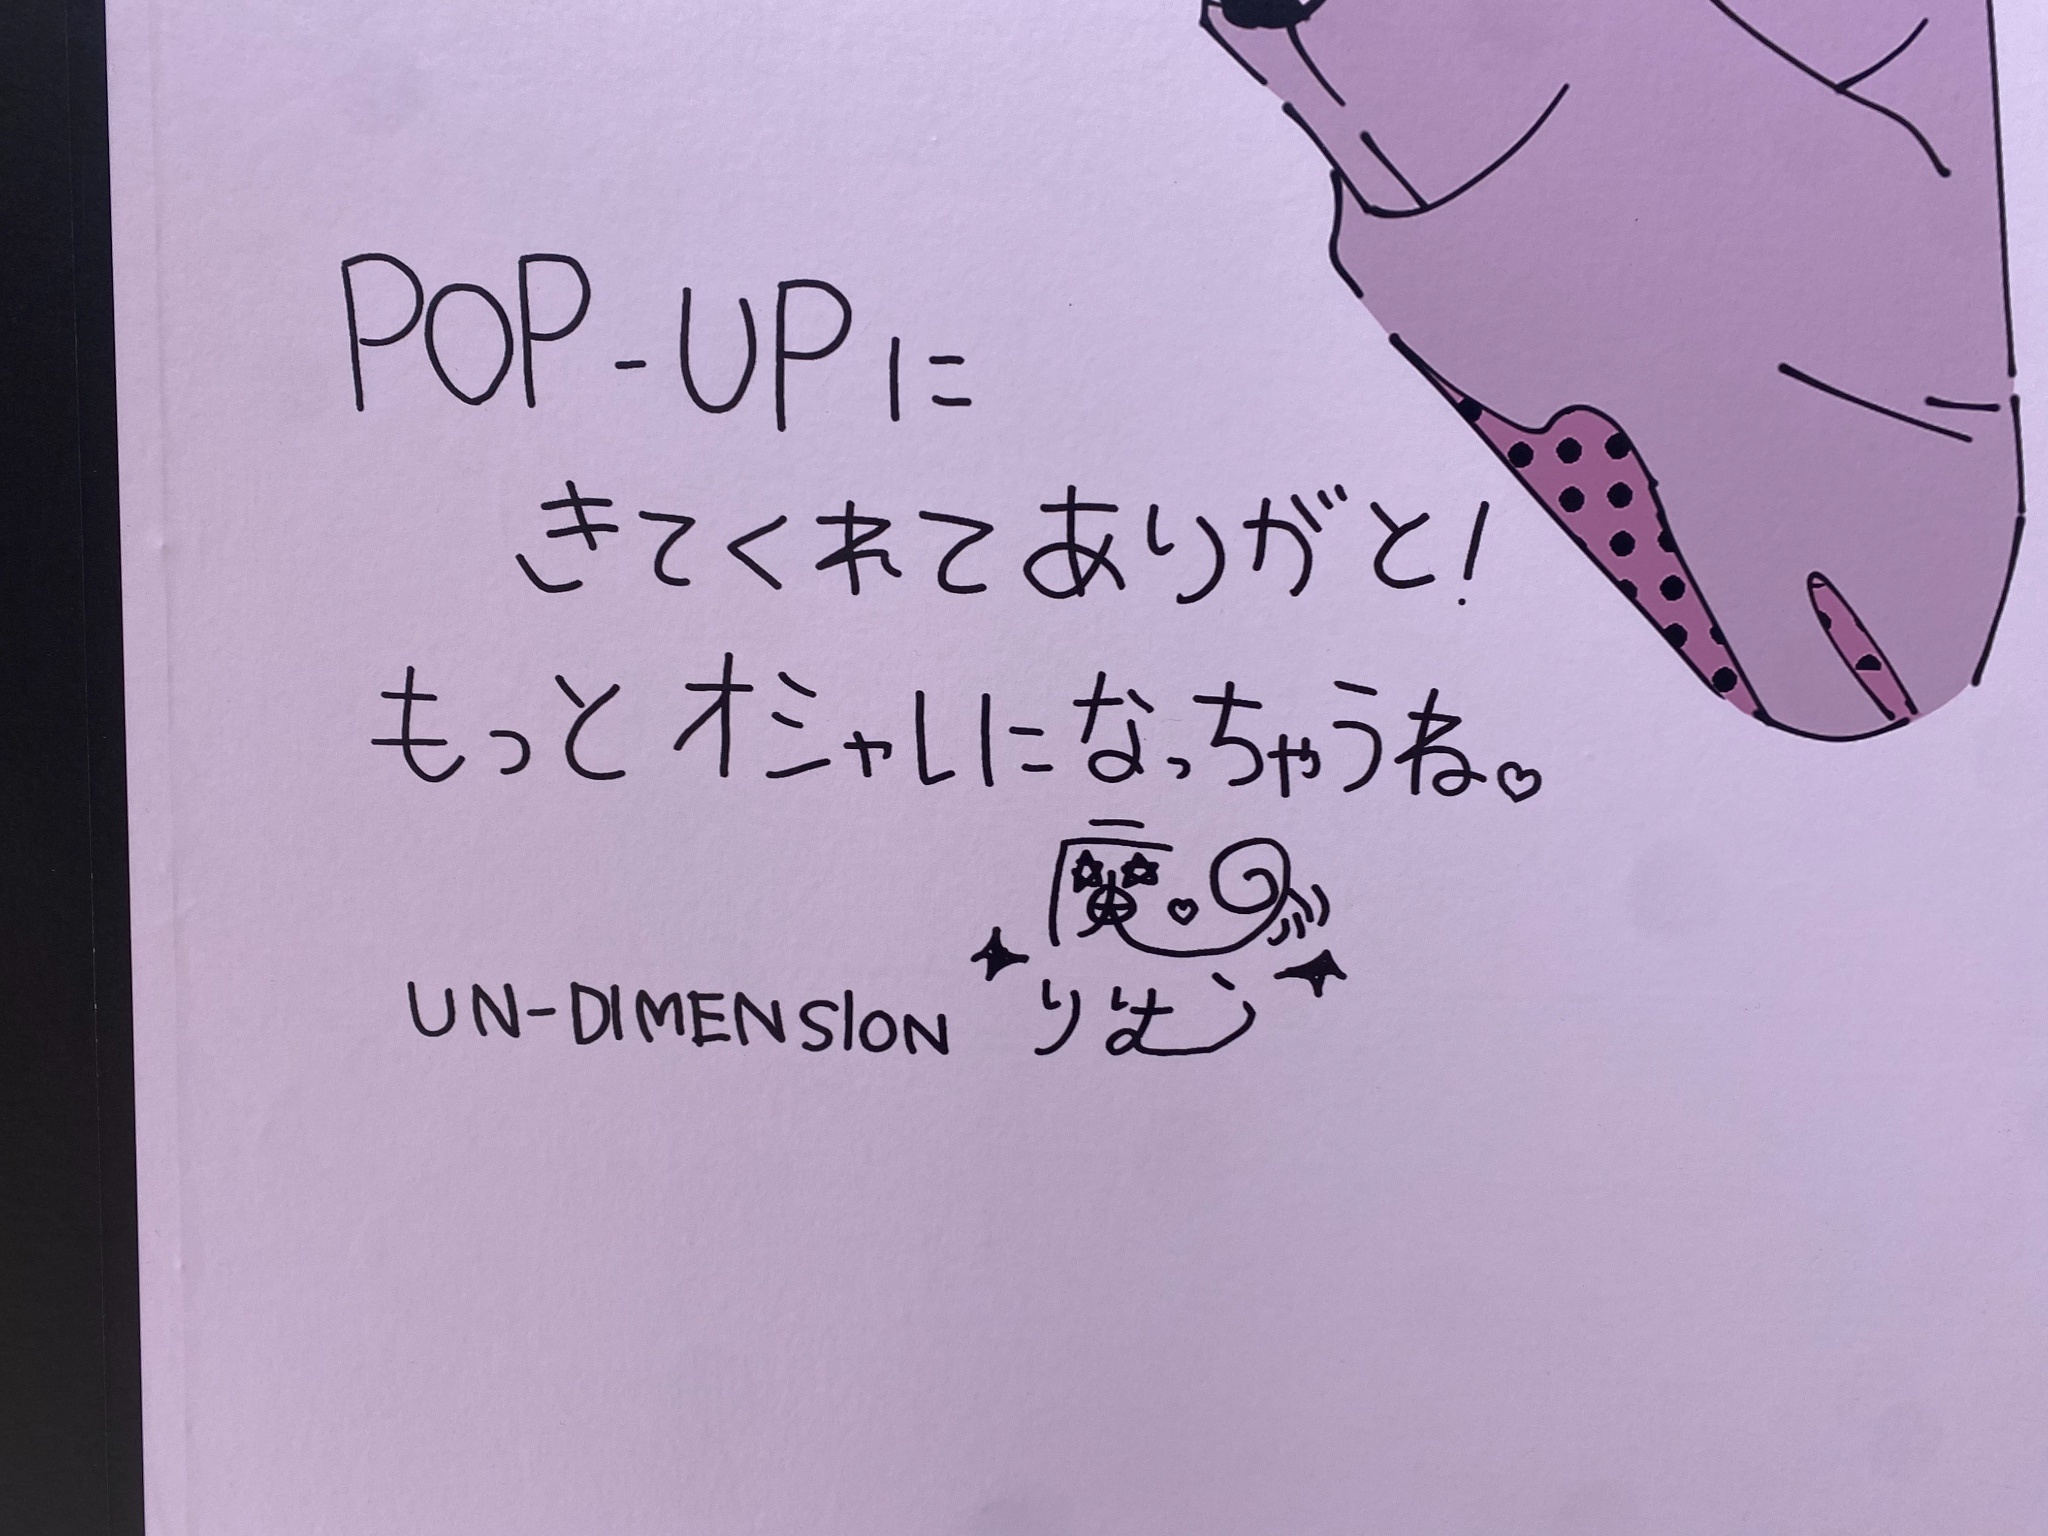 POP-UPに
きてくれてありがと!
もっとオシャレになっちゃうね。♡
魔
UN-DIMENSION りむ